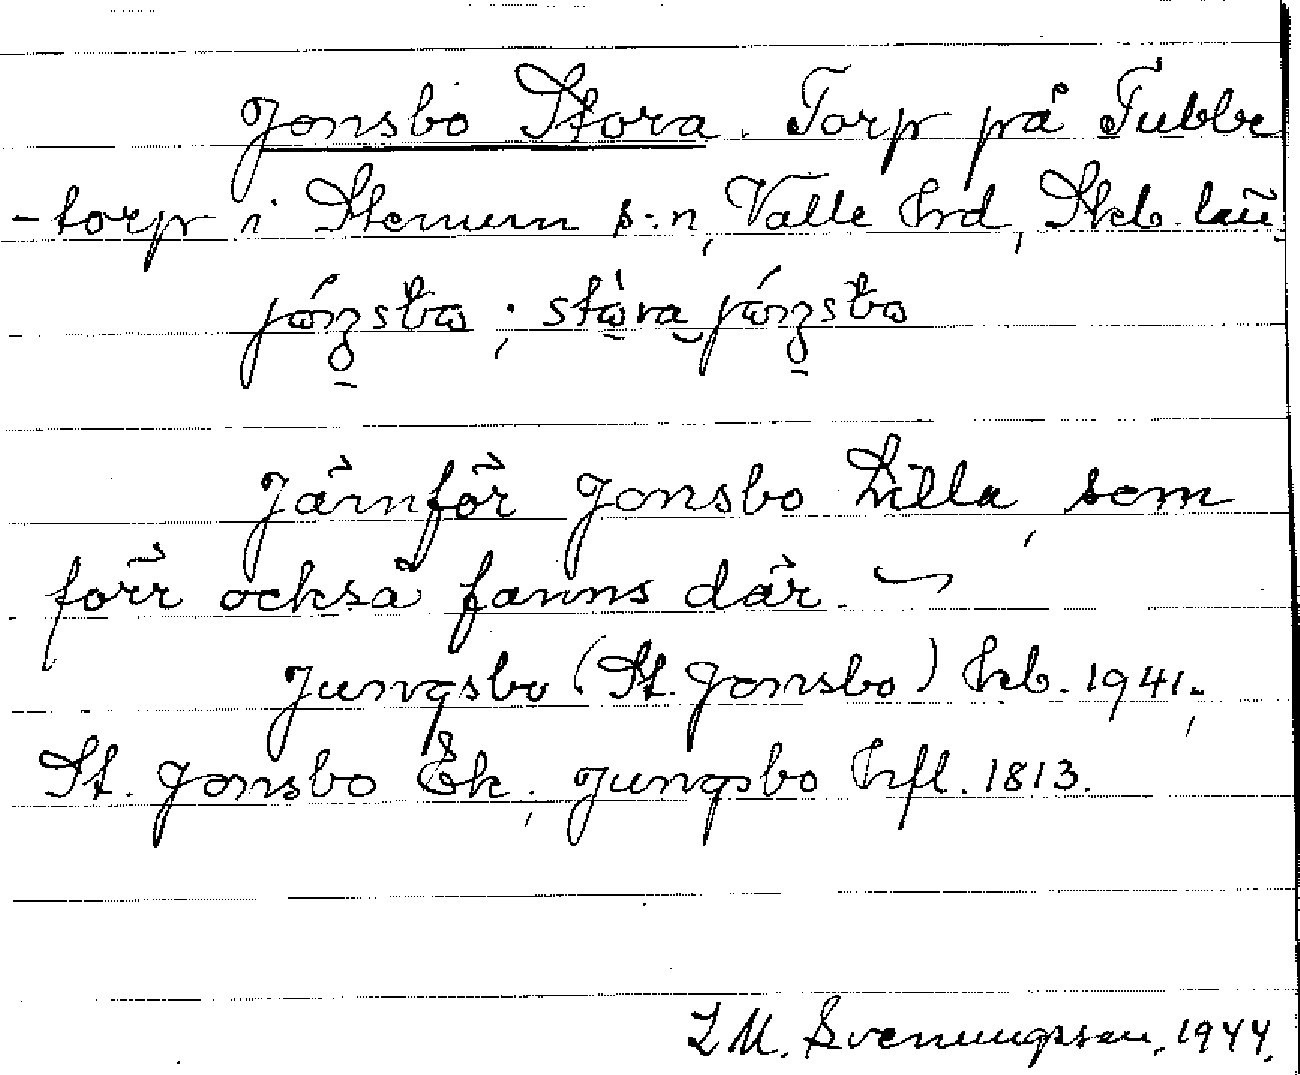 Jonsbo Stora. Torp på Tubbe
-torp i Stenum s:n, Valle hrd, Skb. län.
Jämför Jonsbo Lilla, som
förr också fanns där. —
Jungsbo (St. Jonsbo) hkb. 1941;
St. Jonsbo Ek, Jungsbo hfl. 1813.
L M. Svenungsson, 1944.